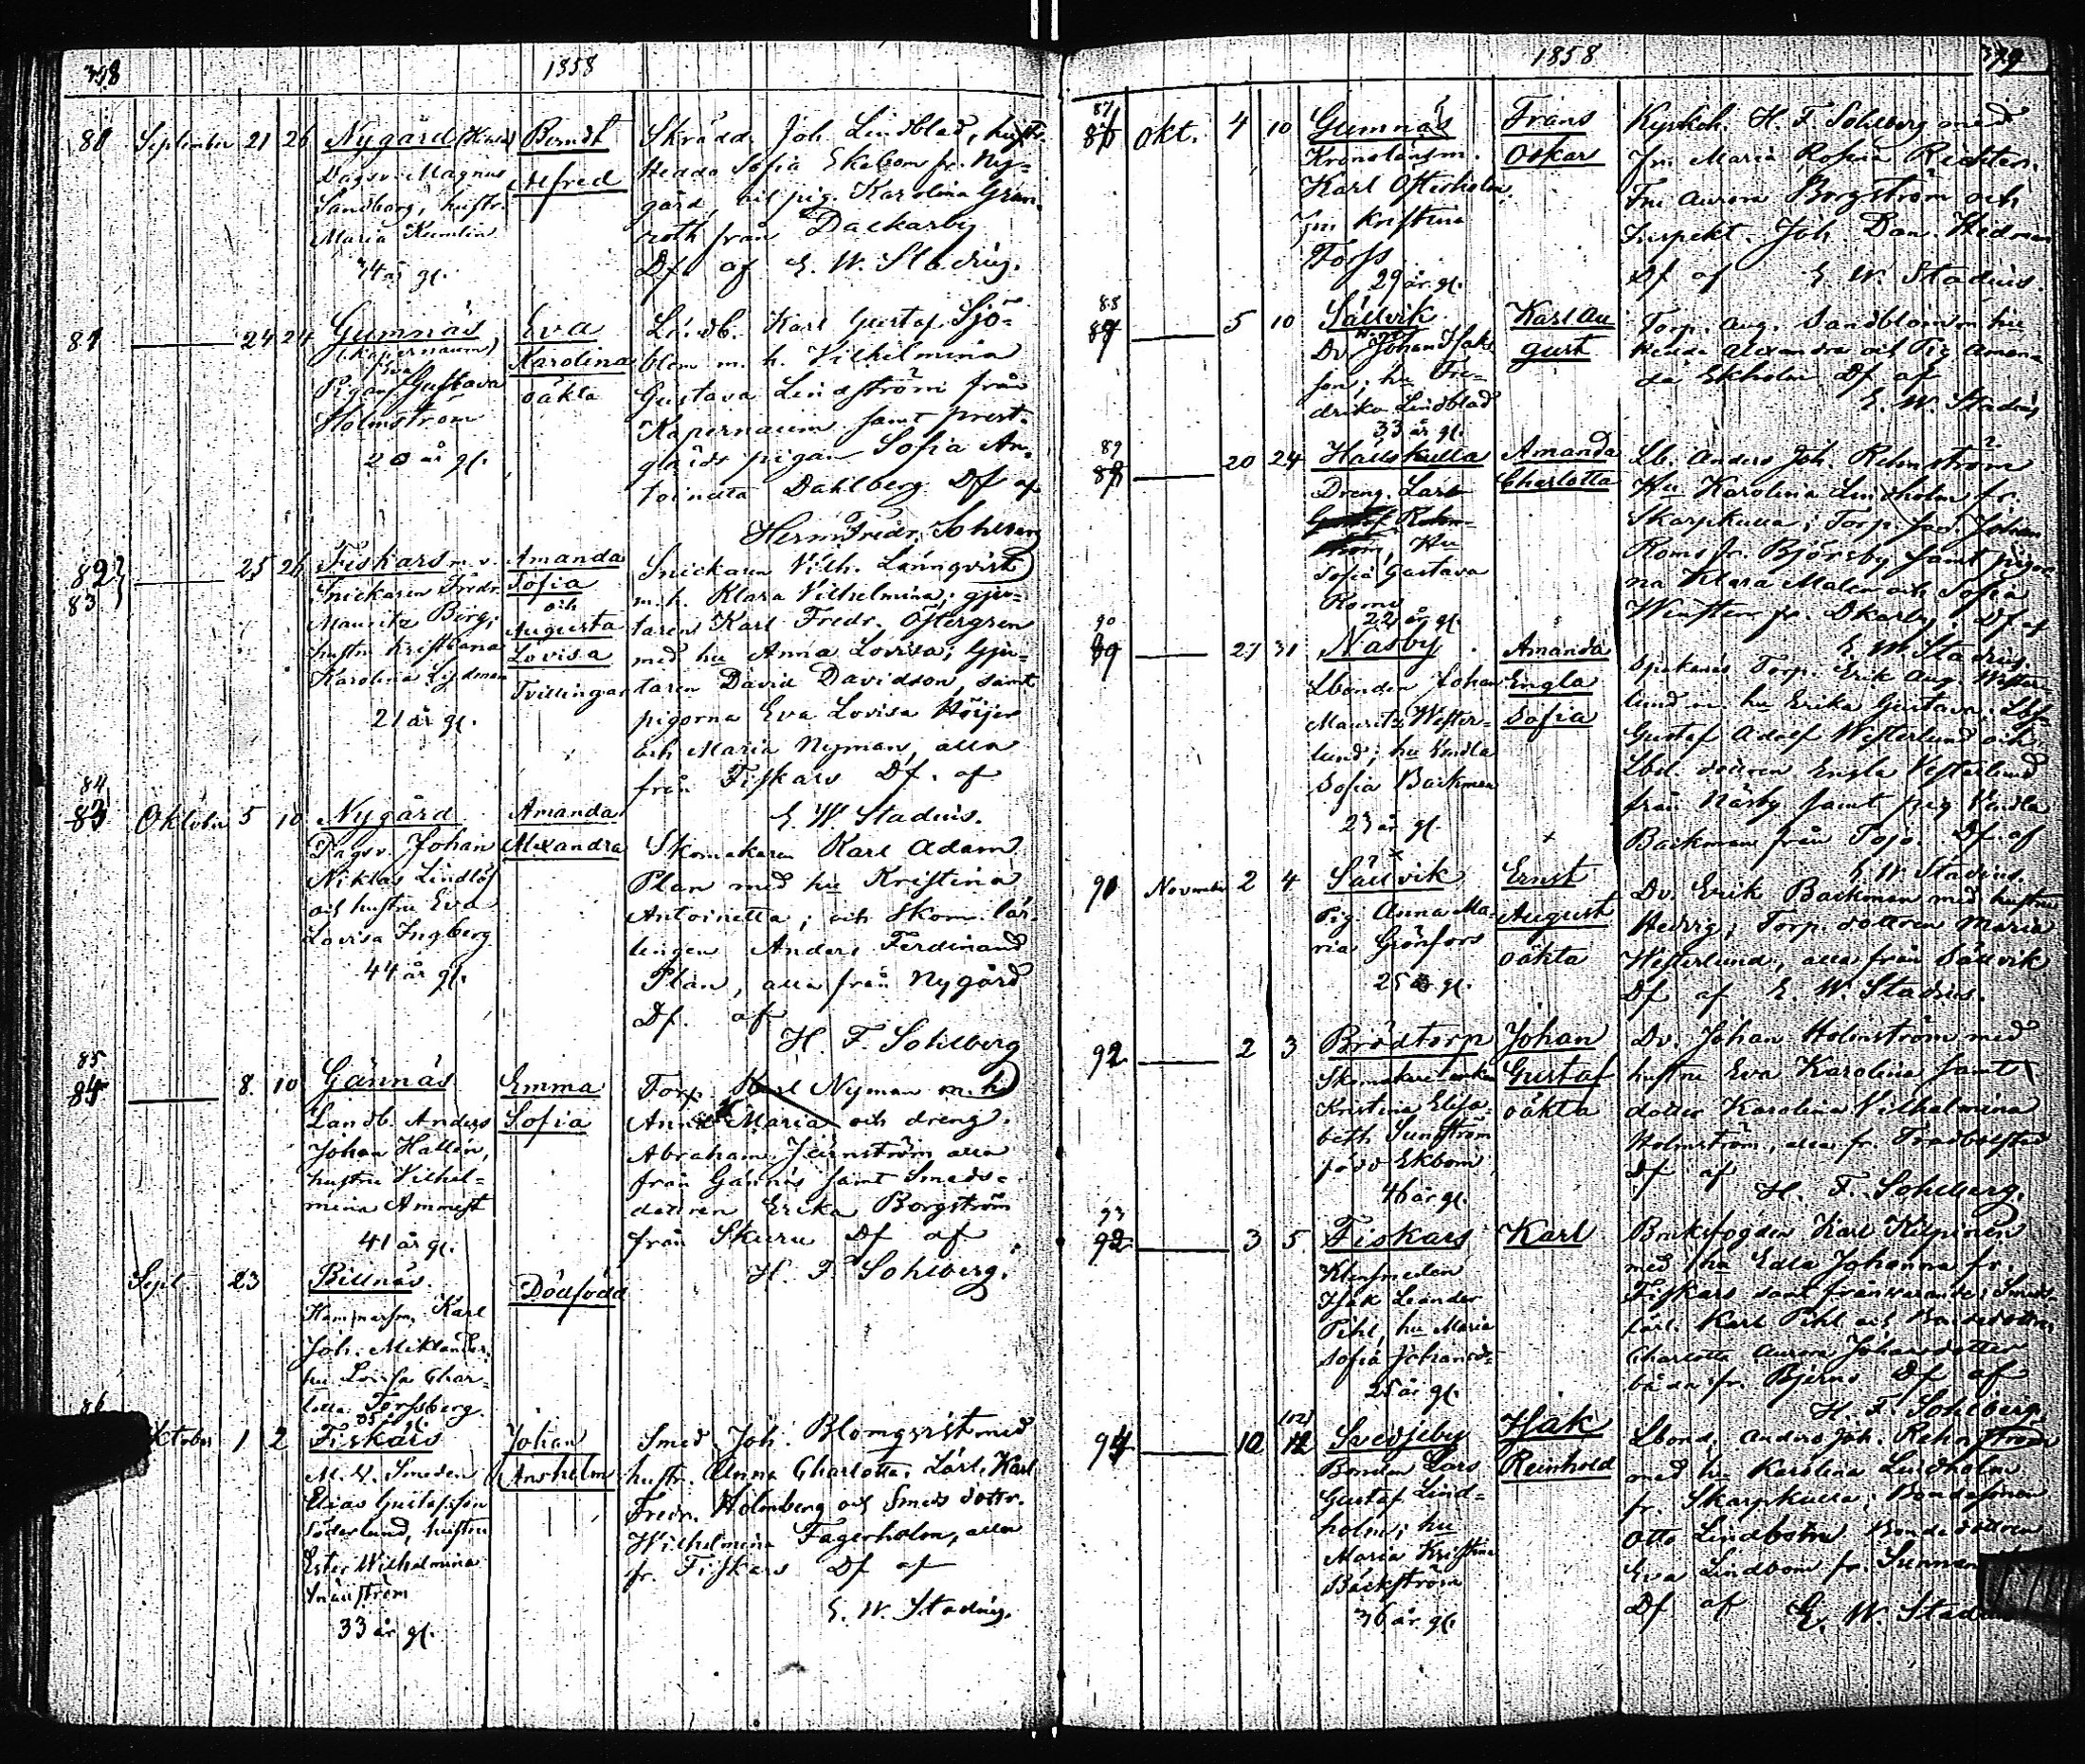 398
1858
80 September 21 26 Nygård Berndt Skrädd. Joh. Lindblad, hustr.
Dagsv. Magnus Alfred Hedda Sofia Ekebom fr. Ny=
Sandberg, hustr. gård, pig. Karolina Grön,
Maria Kumlin roth från Dackarby
34 år gl. Df af E. W. Stadius.
81 24 24 Gumnäs Eva Landb. Karl Gustaf Sjö=
(Kapernaum) Karolina blom m. h. Vilhelmina
Pigan Eva Gustava oäkta Gustava Lindström från
Holmström Kapernaum samt prest=
20 år gl. gårds pigan Sofia An=
toinetta Dahlberg Df af
Herm. Fredr. Sohlberg
82 25 26 Fiskars m. v. Amanda Snickaren Vilh. Lönnqvist
83 Snickaren Fredr. Sofia m. h. Klara Vilhelmina; gju=
Mauritz Borg; och
Augusta taren Karl Fredr. Östergren
hustru Kristiana Lovisa med hu Anna Lovisa; Gju=
Karolina Tvillingar taren David Davidson, samt
21 år gl. pigorna Eva Lovisa Höijer
och Maria Nyman, alla
från Fiskars Df. af
E. W. Stadius.
84
83 Oktober 5 10 Nygård Amanda Skomakaren Karl Adam
Dagsv. Johan Alexandra Plan med hu Kristina
Niklas Lindlöf Antoinetta; och Skom. lär=
och hustru Eva lingen Anders Ferdinand
Lovisa Ingberg Plan, alla från Nygård
44 år gl. Df. af
H. F. Sohlberg
85
84 8 10 Gännäs Emma Torp. Karl Nyman m. h
Landb. Anders Sofia Anna Maria och dreng.
Johan Hallén, Abraham Jernström alla
hustru Vilhel= från Gännäs samt Smeds=
mina Ammest dottren Erika Borgström
41 år gl. från Skuru Df af
H. F. Sohlberg.
Sept. 23 Billnäs Dödfödd
Hammarsm. Karl
Joh. Miklander
hu Lovisa Char=
lotta Forssberg.
86
Oktober 1 2 Fiskars Johan Smed. Joh. Blomqvist med
M. V. Smeden Anshelm hustr. Anna Charlotta; Lärl. Karl
Elias Gustafsson Fredr. Holmberg och Smeds dottr.
Söderlund, hustru Wilhelmina Fagerholm, alla
Ester Wilhelmina fr. Fiskars Df af
E. W. Stadius.
33 år gl.
1858
399
87
86 Okt. 4 10 Gumnäs Frans Kyrkoh. H. F. Sohlberg med
Kronolänsm. Oskar fru Maria Rosina Richter.
Karl Österholm. Fru Aurora Borgström och
fru Kristina Inspekt. Joh. Dan. Hedman
Forss Df af E. W. Stadius.
29 år gl.
88
87 5 10 Sällvik Karl Au Torp. Aug. Sandblom m hu
Dv Johan Isaks gust Hedda Alexandra och Pig Aman
son; hu Fre= da Ekholm Df af
drika Lindblad E. W. Stadius
33 år gl.
89
88 20 24 Hällskulla Amanda Lb. Anders Joh. Rehnström
Dreng. Lars Charlotta Hu Karolina Lindholm fr.
Skarpkulla; Torp. Johan
Hu Roms fr. Björsby samt pigor
Sofia Gustava na Klara Malen och Sofia
Roms fr. Dkarby. Df af
22 år gl. E. W. Stadius.
90
89 27 31 Näsby Amanda Torp. Erik Aug. Wester=
Lbonden Johan Engla lund m. hu Erika Gustava; Lbs.
Mauritz Wester= Sofia Gustaf Adolf Westerlund och
lund; hu Lbd. dottren Engla Westerlund
Sofia Backman från Näsby samt pig Vendla
23 år gl. Backman från Tojo. Df af
E. W. Stadius.
91 November 2 4 Sällvik Ernst Dv. Erik Backman med hustru
Pig. Anna Ma= August Hedvig; Torp. dottren Maria
ria Grönfors oäkta Westerlund, alla från Sällvik
25 år gl. Df af E. W. Stadius.
92 2 3 Brödtorp Johan Dv. Johan Holmström med
Skomakare enkan Gustaf hustru Eva Karolina samt
Kristina Elisa= oäkta dotter Karolina Vilhelmina
beth Sunström Holmström, alla fr.
född Ekbom Df af
46 år gl. H. F. Sohlberg.
93
92 3 5 Fiskars Karl Bruksfogden Karl Kilpinen
Klensmeden med hu Edla Johanna fr.
Isak Leander Fiskars samt frånvarande; Smeds=
Pihl, hu Maria lärl. Karl Pihl och Bondedottren
Sofia Johansd= Charlotta Aurora Johansdotter
25 år gl. båda fr. Bjernå Df af
H. F. Sohlberg.
94 10 12 Svedjeby Isak Lbond. Anders Joh. Rehnström
Bonden Lars Reinhold med hu Karolina Lindholm
Gustaf Lind= fr. Skarpkulla; Bondesonen
holm; hu Otto Lindbom Bonde dottren
Maria Kristina Eva Lindbom fr.
Bäckström Df af E. W. Stadius
36 år gl.